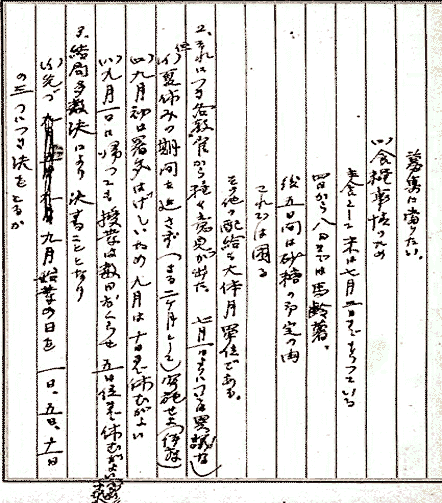 募集に当りたい。
(ハ)食糧事情のため
主食として米は七月三日までもっている
四日から八日までは馬齢薯、
後五日間は砂糖の予定の由
これでは困る
その他の配給も大体月単位である。
2、それにつき各教官から種々意見が出た 七月一日よりについては異議なし
(イ)夏休みの期間を延さず(まる二ケ月として)実施せよ
(ロ)九月初は暑気はげしいため九月は十日まで休むがよい
(ハ)九月一日に帰っても授業は数日おくらせ五日位まで休むがよい
3、結局多数決により決することとなり
(イ)先づ 九月始業の日を 一日、五日、十一日
の三つにつき決をとるか